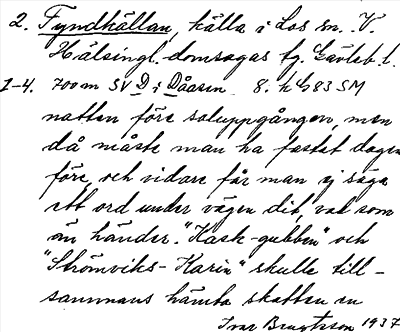 2. Fyndkällan, källa i Los sn. V.
Hälsingl. domsagas tg. Gävleb. l.
1-4. 700 m SV D i Dåasen 8. h G83 SM
natten före soluppgången, men
då måste man ha fastat dagen
före, och vidare får man ej säga
ett ord under vägen dit, vad som
än händer. "Kask-gubben" och
"Strömviks-Karin" skulle till-
sammans hämta skatten en
Ivar Bengtsson 1937